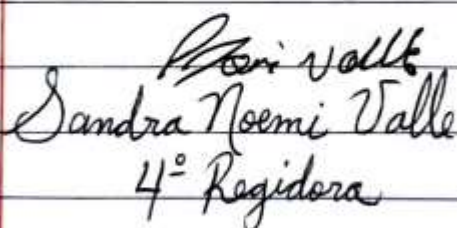 Noemi Valle
Sandra Noemi Valle
4º Regidora